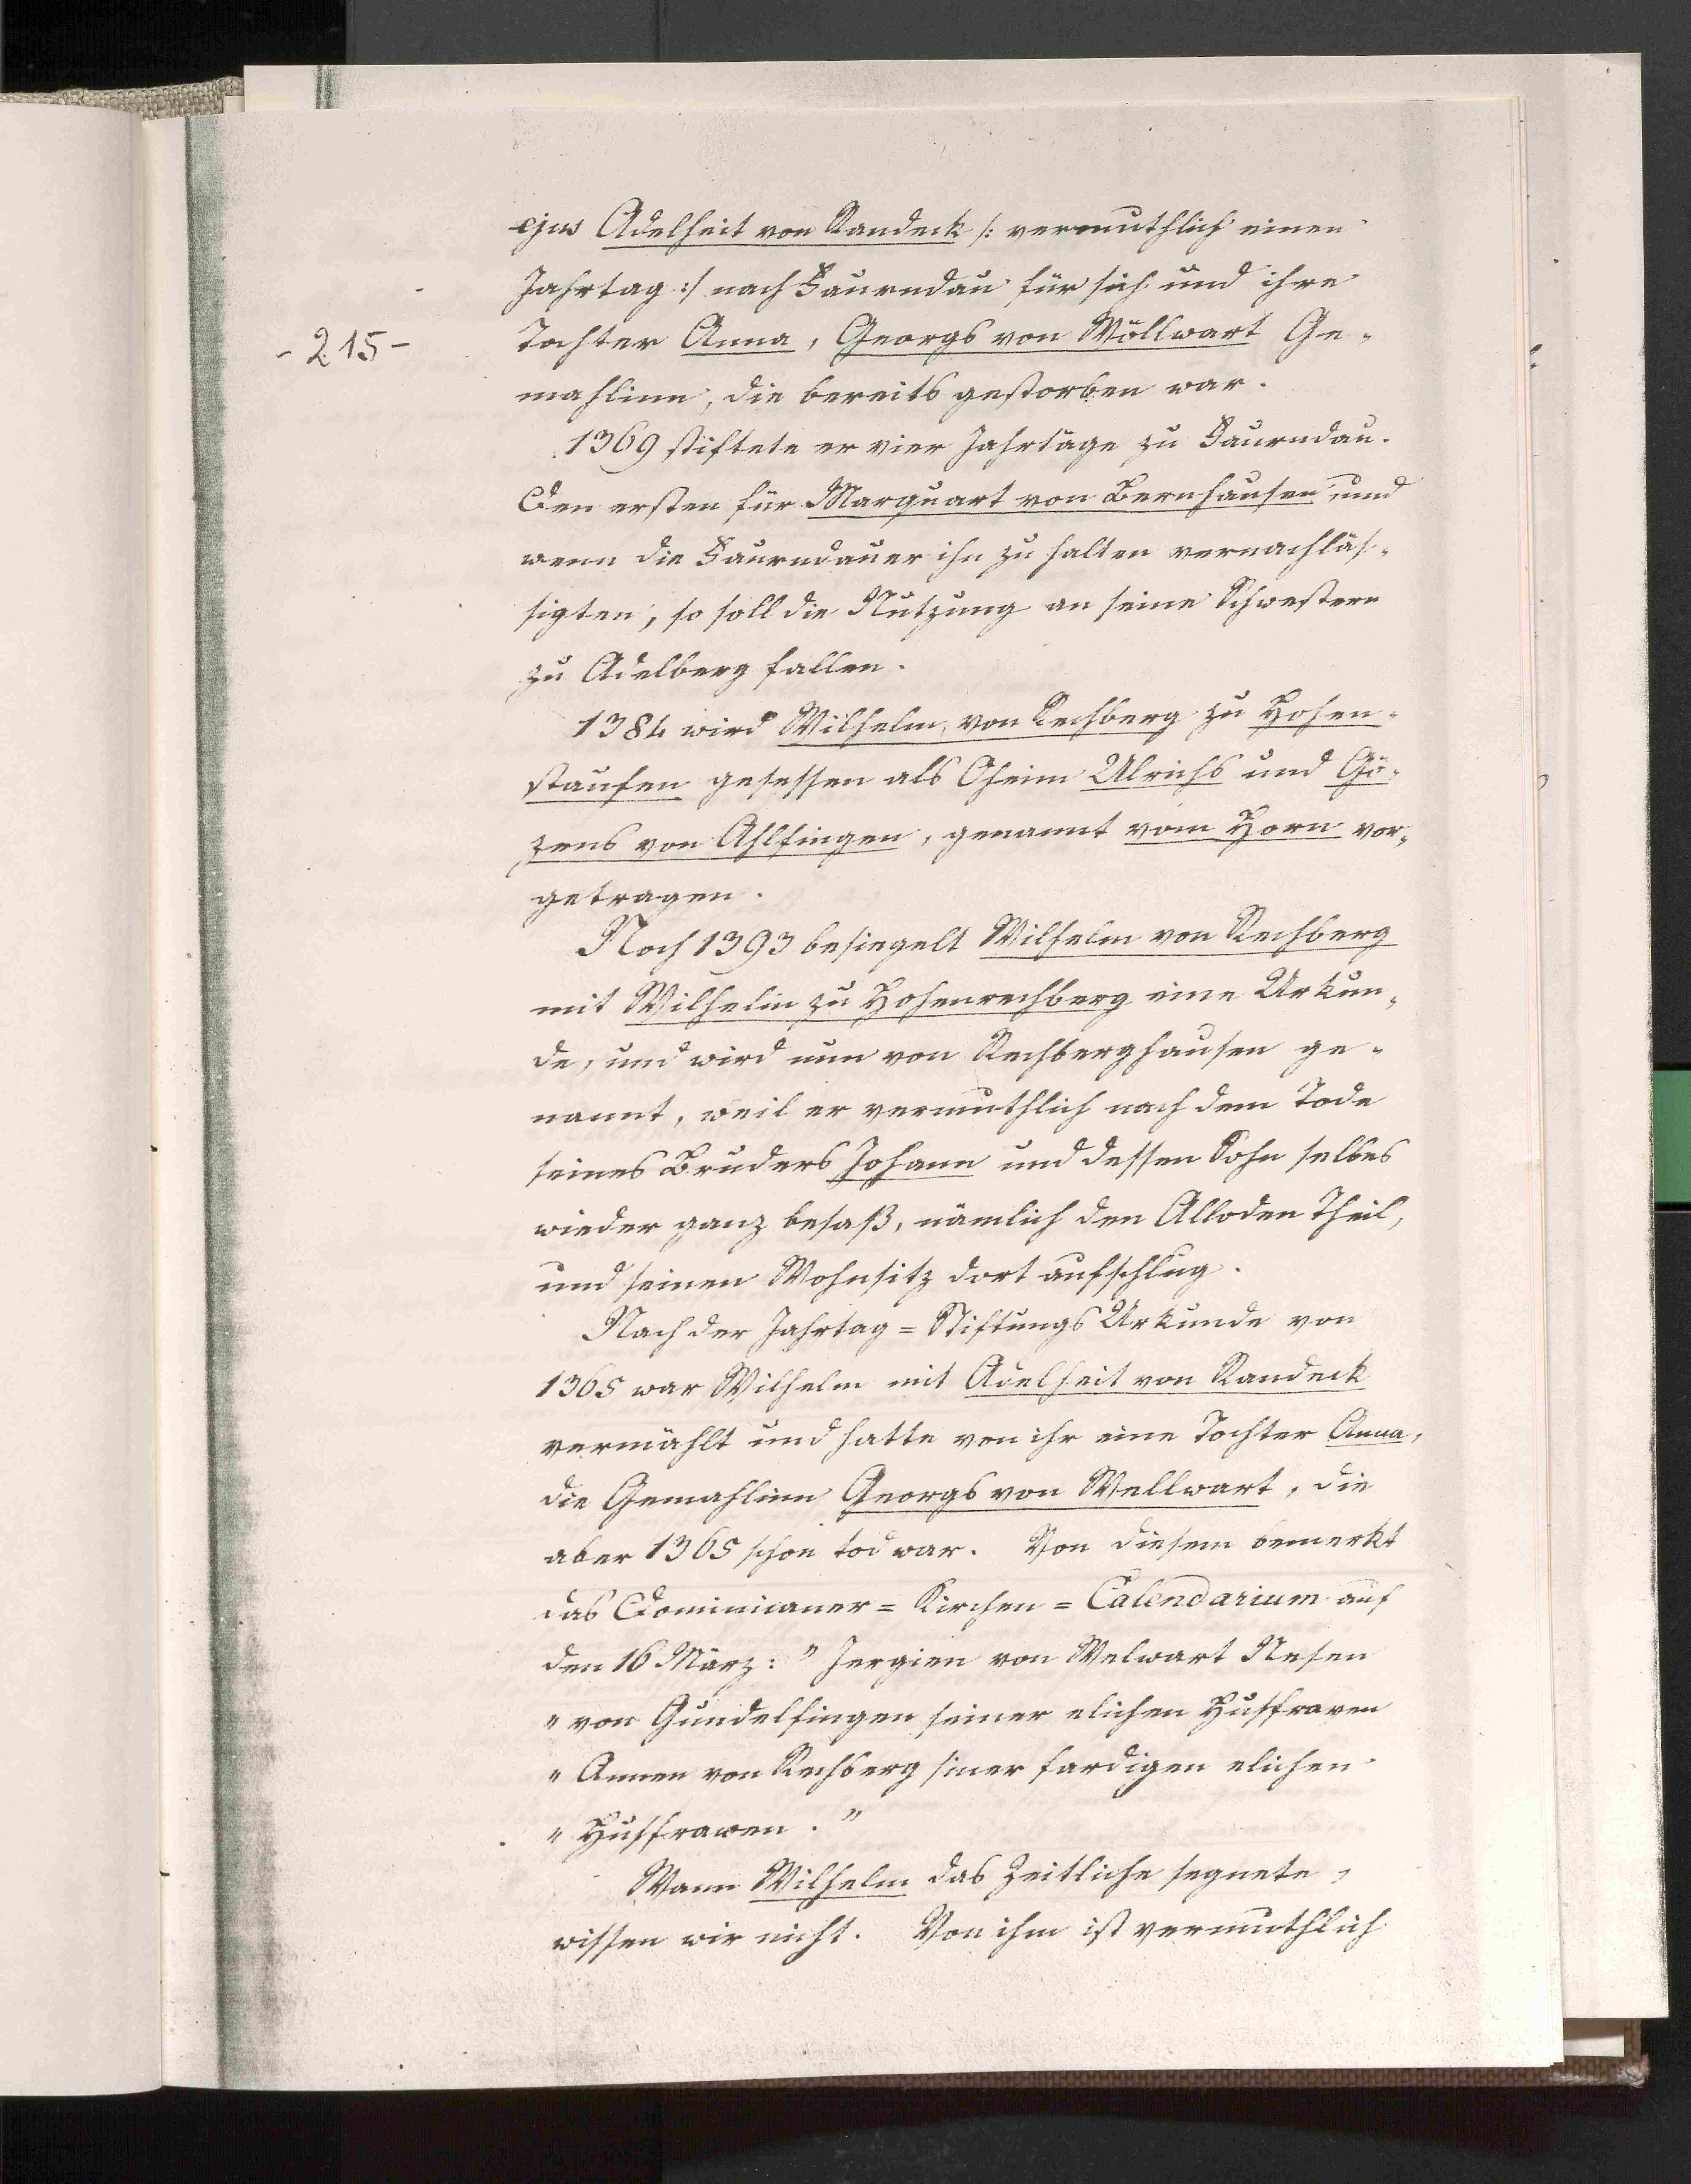 ejus Adelheit von Randeck /: vermuthlich einen
Jahrtag :/ nach Faurndau für sich und ihre
- 215 -
Tochter Anna, Georgs von Wöllwart Ge-
mahlinn, die bereits gestorben war.
1369 stiftete er vier Jahrtäge zu Faurndau.
Den ersten für Marquart von Bernhausen und
wenn die Faurndauer ihn zu halten vernachläs-
sigten, so soll die Nutzung an seine Schwestern
zu Adelberg fallen.
1384 wird Wilhelm von Rechberg zu Hohen-
staufen gesessen als Oheim Ulrichs und Gö-
zens von Ahlfingen, genannt vom Horn vor-
getragen.
Noch 1393 besiegelt Wilhelm von Rechberg
mit Wilhelm zu Hohenrechberg eine Urkun-
de, und wird nun von Rechberghausen ge-
nannt, weil er vermuthlich nach dem Tode
seines Bruders Johann und dessen Sohn selbes
wieder ganz besaß, nämlich den Alloden Theil,
und seinen Wohnsitz dort aufschlug.
Nach der Jahrtag = Stiftungs Urkunde von
1365 war Wilhelm mit Adelheit von Randeck
vermählt und hatte von ihr eine Tochter Anna,
die Gemahlinn Georgs von Wellwart, die
aber 1365 schon tod war. Von diesem bemerkt
das Dominicaner = Kirchen = Calendarium auf
den 16 März: " Jergien von Welwart Nesen
" von Gundelfingen seiner elichen Husfrawen
" Annen von Rechberg siner fardigen elichen
" Husfrawen. "
Wann Wilhelm das Zeitliche segnete,
wissen wir nicht. Von ihm ist vermuthlich